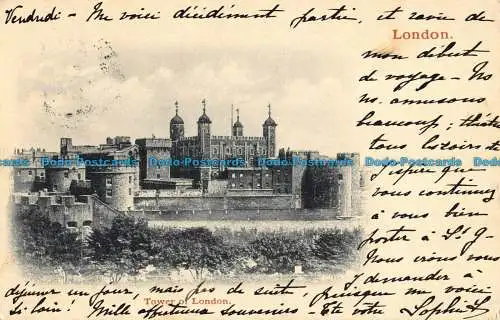 Vendredi - Me voici décidément partie, et ravie de
London.
mon début
de voyage - No
ns. amusons
beaucoup; théât
tous les soirs et
J'espère que
vous continuez
à vous bien
porter à St. G
Nous irons vous
demander à
déjeuner un jour, mais pas de suite, puisque me voici
si loin! Mille affectueux souvenirs - Votre Sophie
Tower of London.
Dodo-Postcards Dodo-Postcards Dodo-Postcards Dodo-Postcards